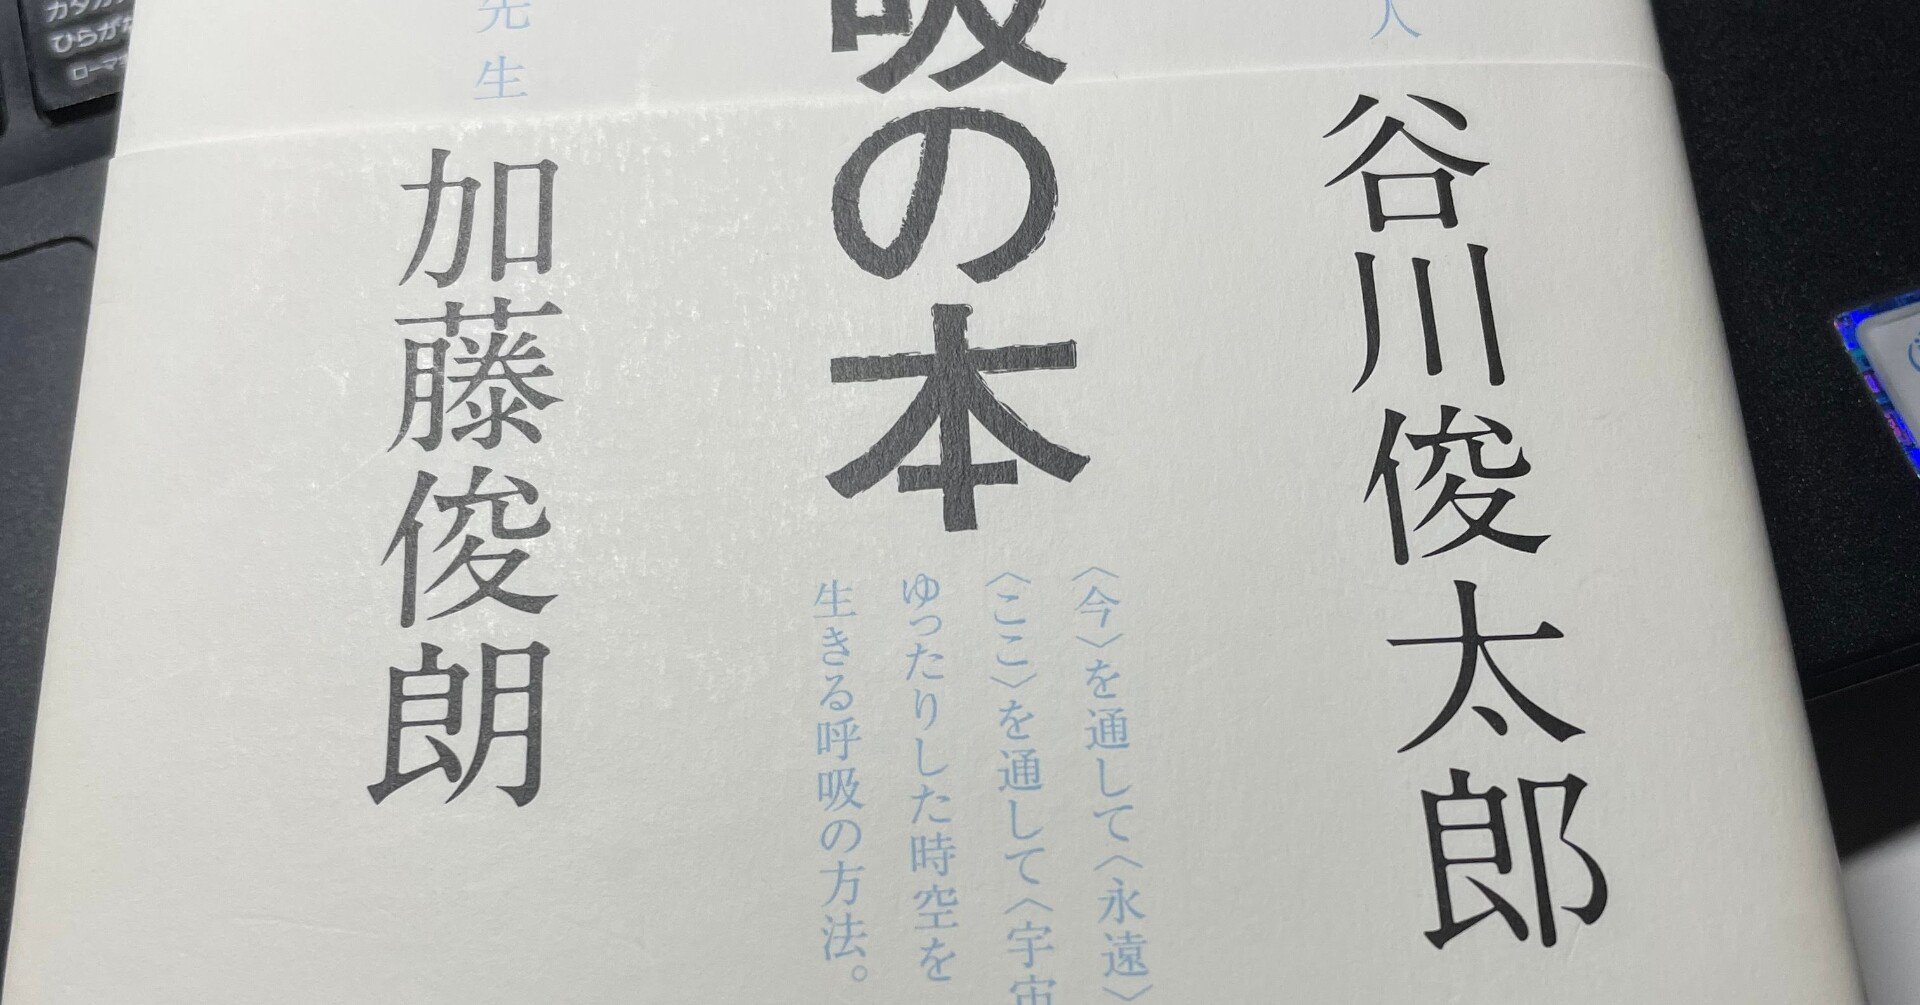 人
谷川俊太郎
吸の本
〈今〉を通して〈永遠〉
〈ここ〉を通して〈宇宙
ゆったりした時空を
生きる呼吸の方法。
先生
加藤俊朗
カタカナ
ひらがな
ローマ字